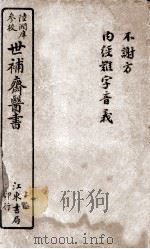 陸潤庠
參校
世補齋醫書
江東書局
印行
不謝方
內經難字音義